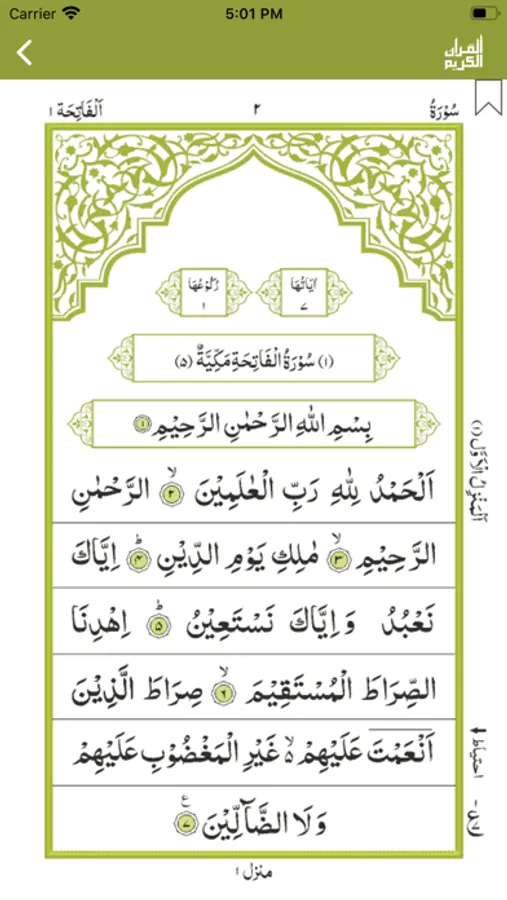 Carrier 5:01 PM
القرآن الكريم
سُوْرَةُ ٢ اَلْفَاتِحَة ١
اٰيَاتُهَا ٧ رُكُوْعُهَا ١
(١) سُوْرَةُ الْفَاتِحَةِ مَكِّيَّةٌ (٥)
بِسْمِ اللهِ الرَّحْمٰنِ الرَّحِيْمِ ١
اَلْحَمْدُ لِلهِ رَبِّ الْعٰلَمِيْنَ ۙ ٢ الرَّحْمٰنِ
الرَّحِيْمِ ۙ ٣ مٰلِكِ يَوْمِ الدِّيْنِ ؕ ۴ اِيَّاكَ
نَعْبُدُ وَاِيَّاكَ نَسْتَعِيْنُ ؕ ۵ اِهْدِنَا
الصِّرَاطَ الْمُسْتَقِيْمَ ۙ ٦ صِرَاطَ الَّذِيْنَ
اَنْعَمْتَ عَلَيْهِمْ ۙ۬ غَيْرِ الْمَغْضُوْبِ عَلَيْهِمْ
وَلَا الضَّآلِّيْنَ ٧ ع
اَلْمَنْزِلُ الْاَوَّل (١)
احتیاط
منزل ١